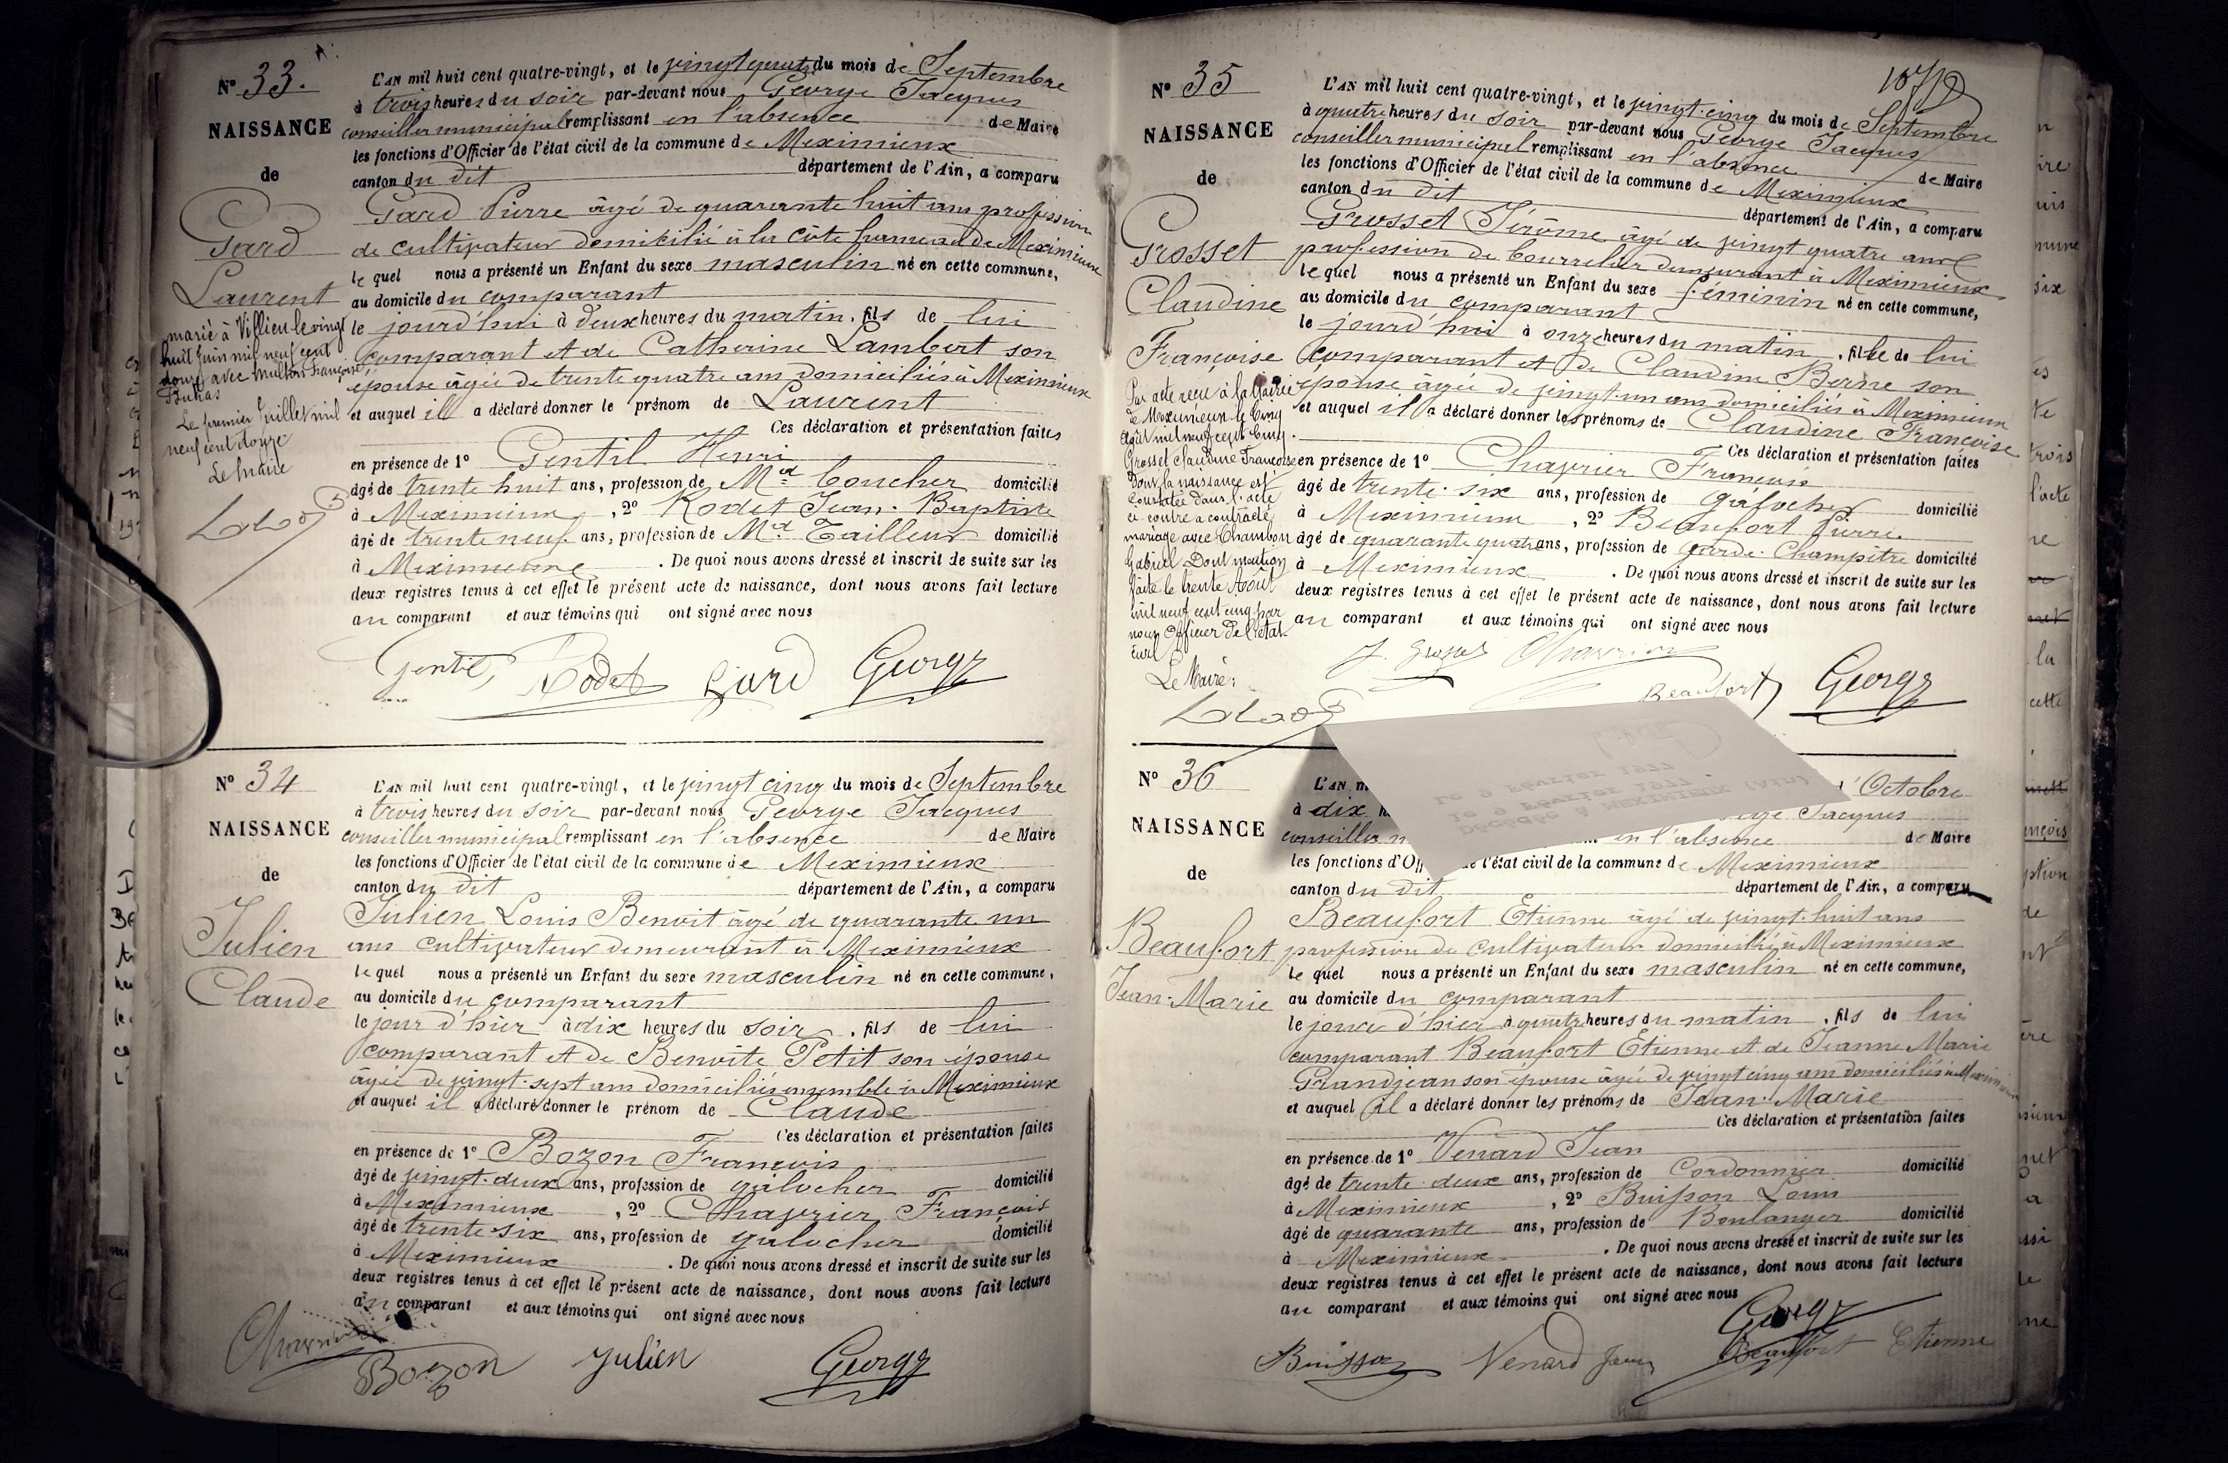 N° 33.
NAISSANCE
de
Gard
Laurent
marié à Villieu le vingt
huit Juin mil neuf cent
douze avec Françoise
Le premier Juillet mil
neuf cent douze
Le Maire
L'AN mil huit cent quatre-vingt, et le vingt quatre du mois de Septembre
à trois heures du soir par-devant nous George Jacques
conseiller municipal remplissant en l'absence de Maire
les fonctions d'Officier de l'état civil de la commune de Meximieux
canton du dit département de l'Ain, a comparu
Gard Pierre âgé de quarante huit ans profession
de cultivateur domicilié à la côte hameau de Meximieux
le quel nous a présenté un Enfant du sexe masculin né en cette commune,
au domicile du comparant
le jourd'hui à deux heures du matin, fils de lui
comparant et de Catherine Lambert son
épouse âgée de trente quatre ans domiciliés à Meximieux
et auquel il a déclaré donner le prénom de Laurent
Ces déclaration et présentation faites
en présence de 1° Gentil Henri
âgé de trente huit ans, profession de Md domicilié
à Meximieux, 2° Rodet Jean-Baptiste
âgé de trente neuf ans, profession de Md Tailleur domicilié
à Meximieux. De quoi nous avons dressé et inscrit de suite sur les
deux registres tenus à cet effet le présent acte de naissance, dont nous avons fait lecture
au comparant et aux témoins qui ont signé avec nous
Gentil Rodet Gard George
N° 34
NAISSANCE
de
Julien
Claude
L'AN mil huit cent quatre-vingt, et le vingt cinq du mois de Septembre
à trois heures du soir par-devant nous George Jacques
conseiller municipal remplissant en l'absence de Maire
les fonctions d'Officier de l'état civil de la commune de Meximieux
canton du dit département de l'Ain, a comparu
Julien Louis Benoit âgé de quarante un
ans cultivateur demeurant à Meximieux
le quel nous a présenté un Enfant du sexe masculin né en cette commune,
au domicile du comparant
le jour d'hier à dix heures du soir, fils de lui
comparant et de Benoite Petit son épouse
âgée de vingt-sept ans domiciliés ensemble à Meximieux
et auquel il a déclaré donner le prénom de Claude
Ces déclaration et présentation faites
en présence de 1° Bozon François
âgé de vingt-deux ans, profession de galocher domicilié
à Meximieux, 2° Chavrier François
âgé de trente-six ans, profession de galocher domicilié
à Meximieux. De quoi nous avons dressé et inscrit de suite sur les
deux registres tenus à cet effet le présent acte de naissance, dont nous avons fait lecture
au comparant et aux témoins qui ont signé avec nous
Chavrier Bozon Julien George
N° 35
NAISSANCE
de
Grosset
Claudine
Françoise
Par acte reçu à la Mairie
de Meximieux le cinq
Août mil neuf cent cinq.
Grosset Claudine Françoise
Dont la naissance est
constatée dans l'acte
ci contre a contracté
mariage avec Chambon
Gabriel Dont mention
faite le trente Août
mil neuf cent cinq par
nous Officier de l'état
Civil
Le Maire:
L'AN mil huit cent quatre-vingt, et le vingt-cinq du mois de Septembre
à quatre heures du soir par-devant nous George Jacques
conseiller municipal remplissant en l'absence de Maire
les fonctions d'Officier de l'état civil de la commune de Meximieux
canton du dit département de l'Ain, a comparu
Grosset Jérôme âgé de vingt quatre ans
profession de bourrelier demeurant à Meximieux
le quel nous a présenté un Enfant du sexe féminin né en cette commune,
au domicile du comparant
le jourd'hui à onze heures du matin, fille de lui
comparant et de Claudine Berne son
épouse âgée de vingt-un ans domiciliés à Meximieux
et auquel il a déclaré donner les prénoms de Claudine Françoise
Ces déclaration et présentation faites
en présence de 1° Chavrier François
âgé de trente-six ans, profession de galocher domicilié
à Meximieux, 2° Beaufort Pierre
âgé de quarante quatre ans, profession de garde-Champêtre domicilié
à Meximieux. De quoi nous avons dressé et inscrit de suite sur les
deux registres tenus à cet effet le présent acte de naissance, dont nous avons fait lecture
au comparant et aux témoins qui ont signé avec nous
J. Grosset Chavrier
Beaufort George
N° 36
NAISSANCE
de
Beaufort
Jean-Marie
L'AN Octobre
à dix Jacques
conseiller en l'absence de Maire
les fonctions d'Off l'état civil de la commune de Meximieux
canton du dit département de l'Ain, a comparu
Beaufort Etienne âgé de vingt-huit ans
profession de cultivateur domicilié à Meximieux
le quel nous a présenté un Enfant du sexe masculin né en cette commune,
au domicile du comparant
le jour d'hier à quatre heures du matin, fils de lui
comparant Beaufort Etienne et de Jeanne Marie
Grandjean son épouse âgée de vingt cinq ans domiciliés à Meximieux
et auquel il a déclaré donner les prénoms de Jean-Marie
Ces déclaration et présentation faites
en présence de 1° Venard Jean
âgé de trente-deux ans, profession de Cordonnier domicilié
à Meximieux, 2° Buisson Louis
âgé de quarante ans, profession de Boulanger domicilié
à Meximieux. De quoi nous avons dressé et inscrit de suite sur les
deux registres tenus à cet effet le présent acte de naissance, dont nous avons fait lecture
au comparant et aux témoins qui ont signé avec nous
George
Buisson Venard Jean Beaufort Etienne